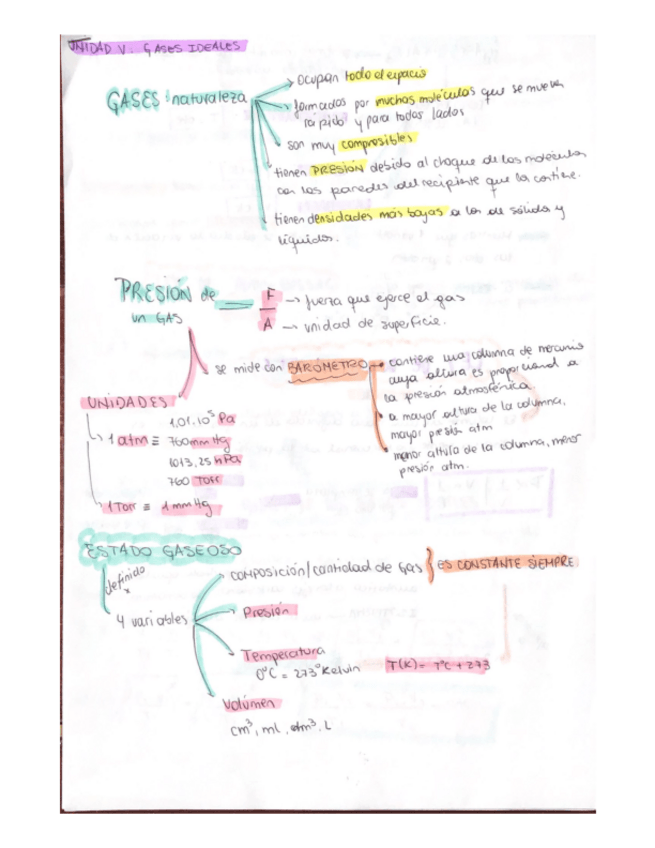 UNIDAD V. GASES IDEALES
GASES: naturaleza
ocupan todo el espacio
formados por muchas moléculas que se mueven
rápido y para todos lados
son muy compresibles
tienen PRESIÓN debido al choque de las moléculas
con las paredes del recipiente que las contiene.
tienen densidades más bajas a los de sólidos y
líquidos.
PRESIÓN de
un GAS
F → fuerza que ejerce el gas
A → unidad de superficie.
se mide con BARÓMETRO
contiene una columna de mercurio
cuya altura es proporcional a
la presión atmosférica
a mayor altura de la columna,
mayor presión atm
menor altura de la columna, menor
presión atm.
UNIDADES
1,01.10⁵ Pa
1 atm ≡ 760 mm Hg
1013,25 hPa
760 Torr
1 Torr ≡ 1 mm Hg
ESTADO GASEOSO
definido
x
4 variables
composición/cantidad de gas } ES CONSTANTE SIEMPRE
Presión
Temperatura
0°C = 273° Kelvin
T(K) = T°C + 273
Volúmen
cm³, ml, dm³, L